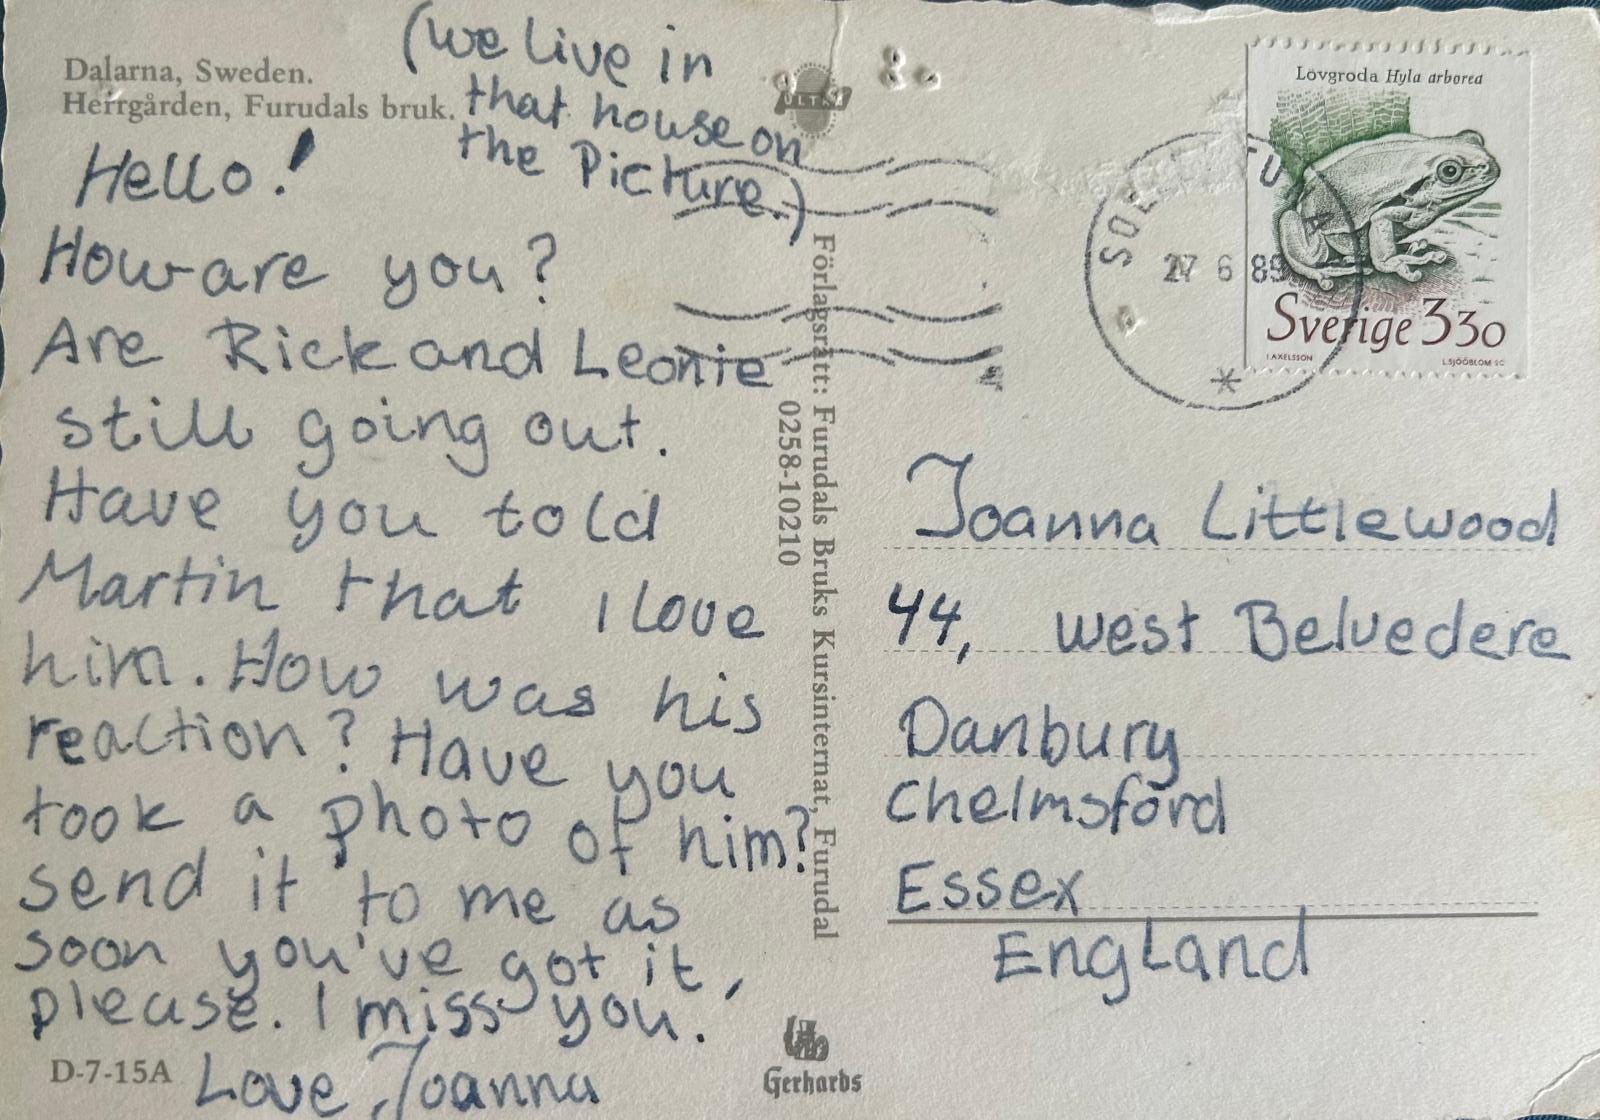 Dalarna, Sweden.
Herrgården, Furudals bruk.
(we live in
that house on
the Picture.)
Hello!
How are you?
Are Rick and Leonie
still going out.
Have you told
Martin that I love
him. How was his
reaction? Have you
took a photo of him?
send it to me as
soon you've got it,
please. I miss you.
Love, Joanna
D-7-15A
ULTRA
Förlagsrätt: Furudals Bruks Kursinternat, Furudal
0258-10210
Gerhards
27 6 89
A
Lövgroda Hyla arborea
Sverige 330
I.AXELSSON
L.SJÖÖBLOM SC
Joanna Littlewood
44, west Belvedere
Danbury
Chelmsford
Essex
England